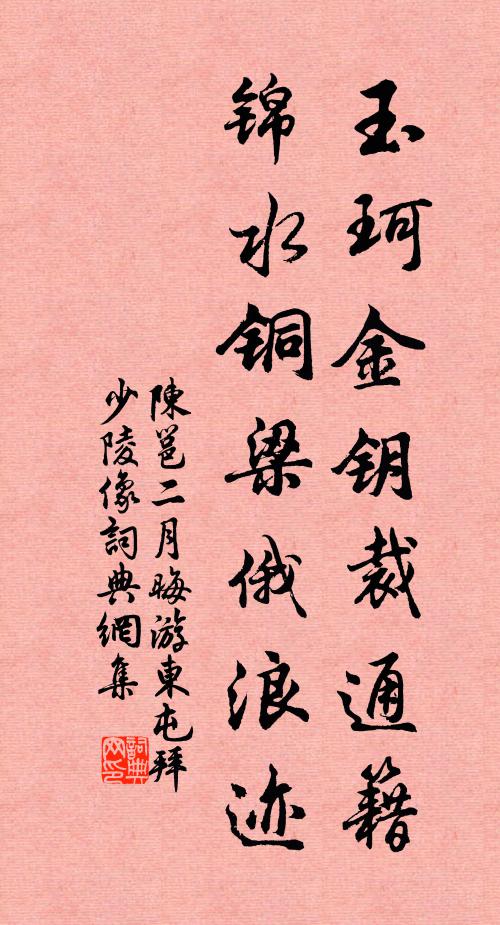 玉珂金钥裁通籍
锦水铜梁俄浪迹
陳邕二月晦游東屯拜
少陵像詞典網集
詞典网印